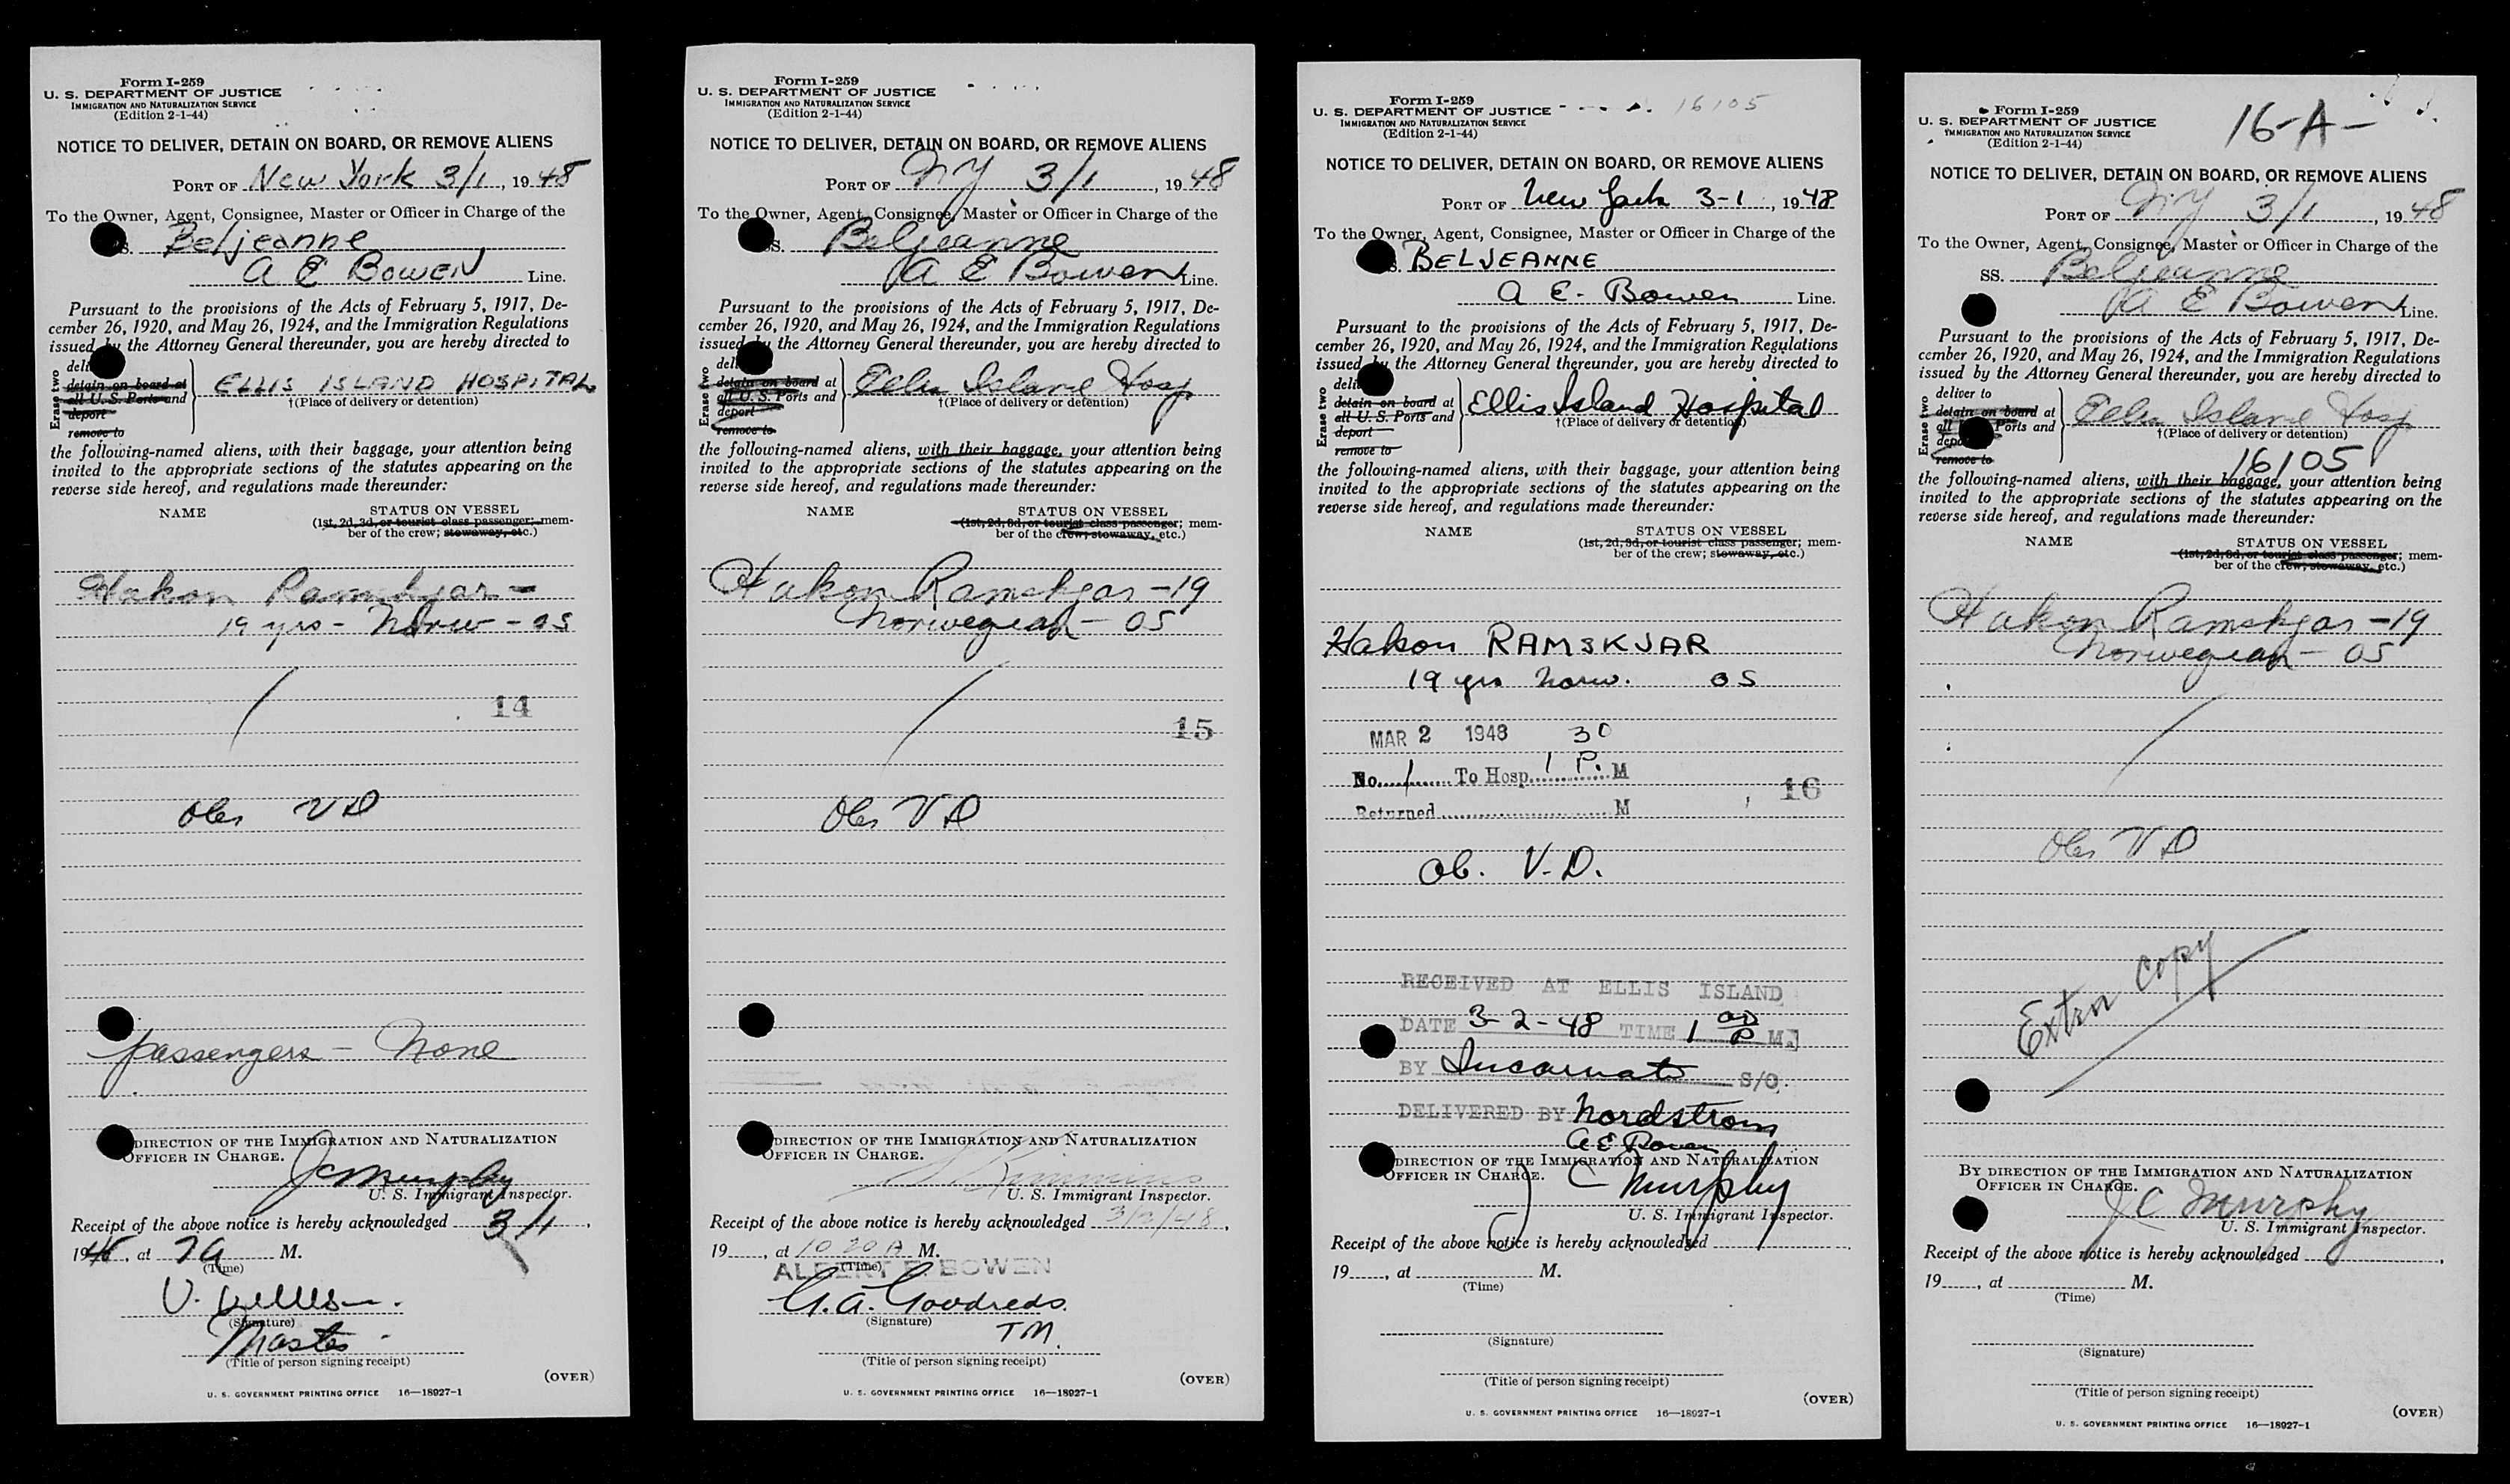 Form I-259
U. S. DEPARTMENT OF JUSTICE
IMMIGRATION AND NATURALIZATION SERVICE
(Edition 2-1-44)
NOTICE TO DELIVER, DETAIN ON BOARD, OR REMOVE ALIENS
PORT OF New York 3/1, 1948
To the Owner, Agent, Consignee, Master or Officer in Charge of the
S. Beljeanne
A E BOWEN Line.
Pursuant to the provisions of the Acts of February 5, 1917, De-
cember 26, 1920, and May 26, 1924, and the Immigration Regulations
issued by the Attorney General thereunder, you are hereby directed to
Erase two
deli
detain on board at
all U. S. Ports and
deport
remove to
ELLIS ISLAND HOSPITAL
†(Place of delivery or detention)
the following-named aliens, with their baggage, your attention being
invited to the appropriate sections of the statutes appearing on the
reverse side hereof, and regulations made thereunder:
NAME STATUS ON VESSEL
(1st, 2d, 3d, or tourist class passenger; mem-
ber of the crew; stowaway, etc.)
Hakon Ramskjar -
19 yrs - Norw - OS
14
Obs VD
passengers - None
DIRECTION OF THE IMMIGRATION AND NATURALIZATION
OFFICER IN CHARGE.
JC Murphy
U. S. Immigrant Inspector.
Receipt of the above notice is hereby acknowledged 3/1,
1948, at 7A M.
(Time)
(Signature)
Master
(Title of person signing receipt)
(OVER)
U. S. GOVERNMENT PRINTING OFFICE 16—18927-1
Form I-259
U. S. DEPARTMENT OF JUSTICE
IMMIGRATION AND NATURALIZATION SERVICE
(Edition 2-1-44)
NOTICE TO DELIVER, DETAIN ON BOARD, OR REMOVE ALIENS
PORT OF NY 3/1, 1948
To the Owner, Agent, Consignee, Master or Officer in Charge of the
SS. Beljeanne
A E Bowen Line.
Pursuant to the provisions of the Acts of February 5, 1917, De-
cember 26, 1920, and May 26, 1924, and the Immigration Regulations
issued by the Attorney General thereunder, you are hereby directed to
Erase two
deli
detain on board at
all U. S. Ports and
deport
remove to
Ellis Island Hosp
†(Place of delivery or detention)
the following-named aliens, with their baggage, your attention being
invited to the appropriate sections of the statutes appearing on the
reverse side hereof, and regulations made thereunder:
NAME STATUS ON VESSEL
(1st, 2d, 3d, or tourist class passenger; mem-
ber of the crew; stowaway, etc.)
Hakon Ramskjar - 19
Norwegian - OS
15
Obs VD
DIRECTION OF THE IMMIGRATION AND NATURALIZATION
OFFICER IN CHARGE.
U. S. Immigrant Inspector.
Receipt of the above notice is hereby acknowledged 3/2/48,
19, at 10 20 A M.
(Time)
ALBERT E. BOWEN
G.A. Goodreds.
(Signature)
TM.
(Title of person signing receipt)
(OVER)
U. S. GOVERNMENT PRINTING OFFICE 16—18927-1
Form I-259
U. S. DEPARTMENT OF JUSTICE 16105
IMMIGRATION AND NATURALIZATION SERVICE
(Edition 2-1-44)
NOTICE TO DELIVER, DETAIN ON BOARD, OR REMOVE ALIENS
PORT OF New York 3-1, 1948
To the Owner, Agent, Consignee, Master or Officer in Charge of the
S. BELJEANNE
A E. Bowen Line.
Pursuant to the provisions of the Acts of February 5, 1917, De-
cember 26, 1920, and May 26, 1924, and the Immigration Regulations
issued by the Attorney General thereunder, you are hereby directed to
Erase two
deli
detain on board at
all U. S. Ports and
deport
remove to
Ellis Island Hospital
†(Place of delivery or detention)
the following-named aliens, with their baggage, your attention being
invited to the appropriate sections of the statutes appearing on the
reverse side hereof, and regulations made thereunder:
NAME STATUS ON VESSEL
(1st, 2d, 3d, or tourist class passenger; mem-
ber of the crew; stowaway, etc.)
Hakon RAMSKJAR
19 yrs Norw. OS
MAR 2 1948 30
No. 1 To Hosp. 1 P. M
Returned M
16
Ob. V.D.
RECEIVED AT ELLIS ISLAND
DATE 3-2-48 TIME 1 00 P M.
BY Incarnato S/O.
DELIVERED BY Nordstrom
A E Bowen
DIRECTION OF THE IMMIGRATION AND NATURALIZATION
OFFICER IN CHARGE.
J C Murphy
U. S. Immigrant Inspector.
Receipt of the above notice is hereby acknowledged
19, at M.
(Time)
(Signature)
(Title of person signing receipt)
(OVER)
U. S. GOVERNMENT PRINTING OFFICE 16—18927-1
Form I-259
U. S. DEPARTMENT OF JUSTICE
IMMIGRATION AND NATURALIZATION SERVICE
(Edition 2-1-44)
16-A-
NOTICE TO DELIVER, DETAIN ON BOARD, OR REMOVE ALIENS
PORT OF NY 3/1, 1948
To the Owner, Agent, Consignee, Master or Officer in Charge of the
SS. Beljeanne
A E Bowen Line.
Pursuant to the provisions of the Acts of February 5, 1917, De-
cember 26, 1920, and May 26, 1924, and the Immigration Regulations
issued by the Attorney General thereunder, you are hereby directed to
Erase two
deliver to
detain on board at
all Ports and
depo
remove to
Ellis Island Hosp
†(Place of delivery or detention)
16105
the following-named aliens, with their baggage, your attention being
invited to the appropriate sections of the statutes appearing on the
reverse side hereof, and regulations made thereunder:
NAME STATUS ON VESSEL
(1st, 2d, 3d, or tourist class passenger; mem-
ber of the crew; stowaway, etc.)
Hakon Ramskjar - 19
Norwegian - OS
Obs VD
Extra copy
BY DIRECTION OF THE IMMIGRATION AND NATURALIZATION
OFFICER IN CHARGE.
J C Murphy
U. S. Immigrant Inspector.
Receipt of the above notice is hereby acknowledged
19, at M.
(Time)
(Signature)
(Title of person signing receipt)
(OVER)
U. S. GOVERNMENT PRINTING OFFICE 16—18927-1